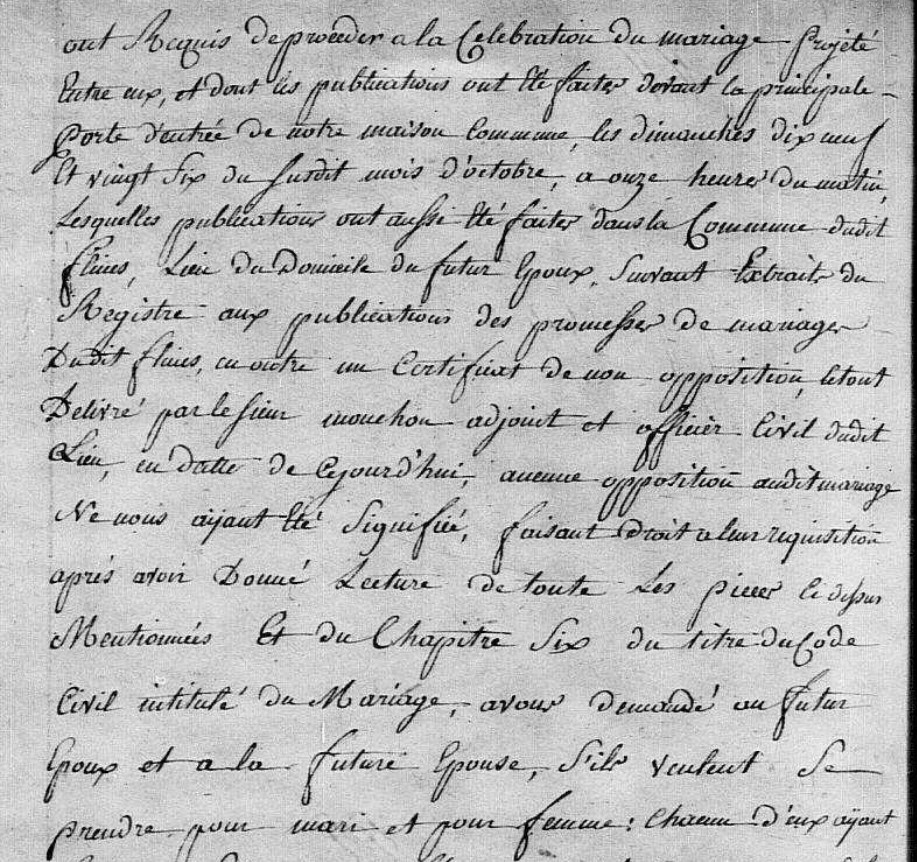 ont Requis de proceder a la Celebration du mariage Projeté
Entre eux, et dont les publications ont Eté faites devant la principale
Porte d'entrée de notre maison Commune, les dimanches dix neuf
Et vingt Six du susdit mois d'octobre, a onze heures du matin,
Lesquelles publications ont aussi Eté faites dans la Commune dudit
flines, Lieu du Domicile du futur Epoux, Suivant Extrait du
Registre aux publications des promesses de mariages
Dudit flines, en outre un Certificat de non opposition, le tout
Delivré par le sieur mouchon adjoint et officier Civil dudit
Lieu, en datte de Cejourd'hui, aucune opposition audit mariage
Ne nous aÿant Eté Signifiée, faisant Droit a leur requisition
aprés avoir Donné Lecture de toute Les pieces Ci dessus
Mentionnées Et du Chapitre Six du titre du Code
Civil intitulé du Mariage, avons Demandé au futur
Epoux et a la future Epouse, S'ils veulent Se
prendre pour mari et pour femme : Chacun D'eux aÿant